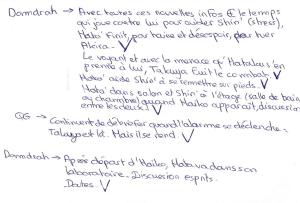 Domdrah → Avec toutes ces nouvelles infos et le temps
qui joue contre lui pour aider Shin' (stress),
Hoto' finit, par haine et désespoir, par tuer
Akira. V
Le voyant et avec la menace qu'Hatalus s'en
prenne à lui, Takuya fuit le combat. V
Hoto' aide Shin' à se remettre sur pieds. V
Hoto' dans salon et Shin' à l'étage (salle de bain
ou chambre) quand Haiko apparaît, discussion
entre les deux. V
GG → Continuent de débriefer quand l'alarme se déclenche =
Takuya et Id. Mais il se rend. V
Domdrah → Après départ d'Haiko, Hoto va dans son
laboratoire. Discussion esprits.
Dates. V